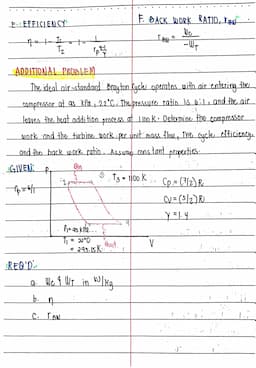 E. EFFICIENCY
η = 1 - T₁/T₂ = 1 -
F. BACK WORK RATIO, rBW
rBW = Wc / -WT
ADDITIONAL PROBLEM
The ideal air-standard Brayton Cycle operates with air entering the
compressor at 95 kPa, 22°C. The pressure ratio is 6:1 and the air
leaves the heat addition process at 1100 K. Determine the compressor
work and the turbine work per unit mass flow, the cycle efficiency,
and the back work ratio. Assume constant properties.
GIVEN:
P
rp = 6/1
T₃ = 1100 K
Cp = (7/2) R
Cv = (5/2) R
γ = 1.4
P₁ = 95 kPa
T₁ = 22°C
= 295.15K
V
REQ'D:
a. Wc & WT in kJ/kg
b. η
c. rBW